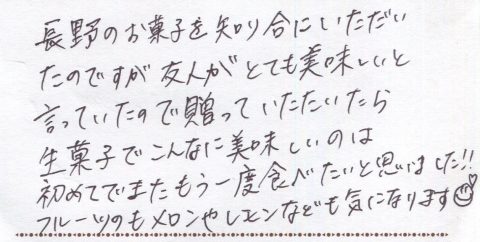 長野のお菓子を知り合にいただい
たのですが友人がとても美味しいと
言っていたので贈っていただいたら
生菓子でこんなに美味しいのは
初めてでまたもう一度食べたいと思いました!!
フルーツのもメロンやレモンなども気になります